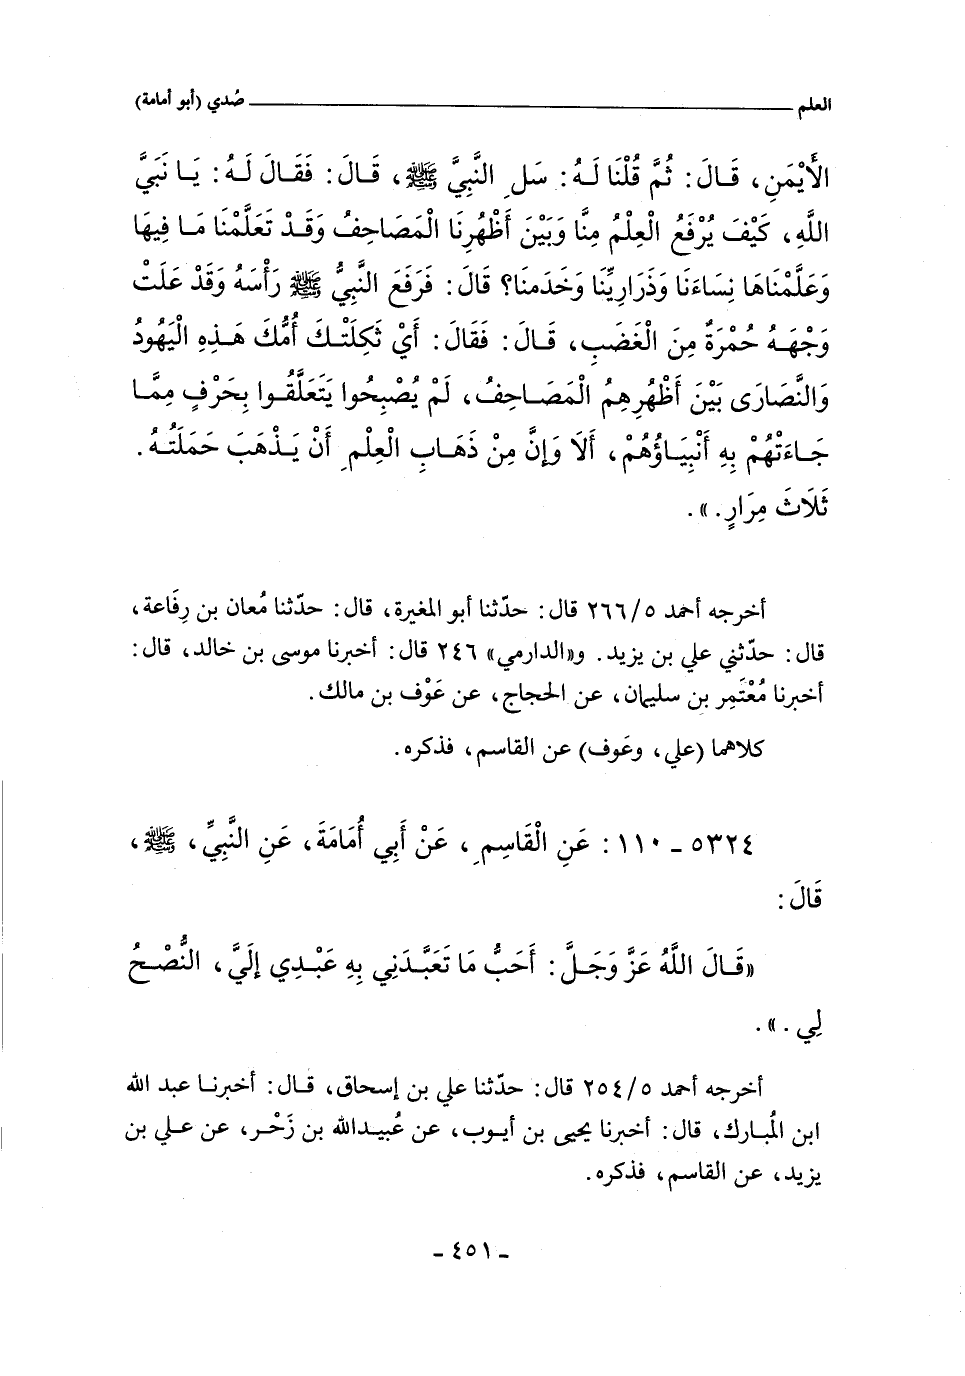 العلم ـــــــــــــــــــــــــــــــــــ صُدي (أبو أمامة)
الأَيْمَنِ، قَالَ: ثُمَّ قُلْنَا لَهُ: سَلِ النَّبِيَّ ﷺ، قَالَ: فَقَالَ لَهُ: يَا نَبِيَّ
اللَّهِ، كَيْفَ يُرْفَعُ الْعِلْمُ مِنَّا وَبَيْنَ أَظْهُرِنَا الْمَصَاحِفُ وَقَدْ تَعَلَّمْنَا مَا فِيهَا
وَعَلَّمْنَاهَا نِسَاءَنَا وَذَرَارِيِّنَا وَخَدَمنَا؟ قَالَ: فَرَفَعَ النَّبِيُّ ﷺ رَأْسَهُ وَقَدْ عَلَتْ
وَجْهَهُ حُمْرَةٌ مِنَ الْغَضَبِ، قَالَ: فَقَالَ: أَيْ ثَكِلَتْكَ أُمُّكَ هَذِهِ الْيَهُودُ
وَالنَّصَارَى بَيْنَ أَظْهُرِهِمُ الْمَصَاحِفُ، لَمْ يُصْبِحُوا يَتَعَلَّقُوا بِحَرْفٍ مِمَّا
جَاءَتْهُمْ بِهِ أَنْبِيَاؤُهُمْ، أَلَا وَإِنَّ مِنْ ذَهَابِ الْعِلْمِ أَنْ يَذْهَبَ حَمَلَتُهُ.
ثَلَاثَ مِرَارٍ.».
أخرجه أحمد ٢٦٦/٥ قال: حدّثنا أبو المغيرة، قال: حدّثنا مُعان بن رِفَاعة،
قال: حدّثني علي بن يزيد. و«الدارمي» ٢٤٦ قال: أخبرنا موسى بن خالد، قال:
أخبرنا مُعْتَمِر بن سليمان، عن الحجاج، عن عَوْف بن مالك.
كلاهما (علي، وعَوف) عن القاسم، فذكره.
٥٣٢٤ ـ ١١٠: عَنِ الْقَاسِمِ، عَنْ أَبِي أُمَامَةَ، عَنِ النَّبِيِّ، ﷺ،
قَالَ:
«قَالَ اللَّهُ عَزَّ وَجَلَّ: أَحَبُّ مَا تَعَبَّدَنِي بِهِ عَبْدِي إِلَيَّ، النُّصْحُ
لِي.».
أخرجه أحمد ٢٥٤/٥ قال: حدّثنا علي بن إسحاق، قال: أخبرنا عبد الله
ابن المُبارك، قال: أخبرنا يحيى بن أيوب، عن عُبيدالله بن زَحْر، عن علي بن
يزيد، عن القاسم، فذكره.
ـ ٤٥١ ـ